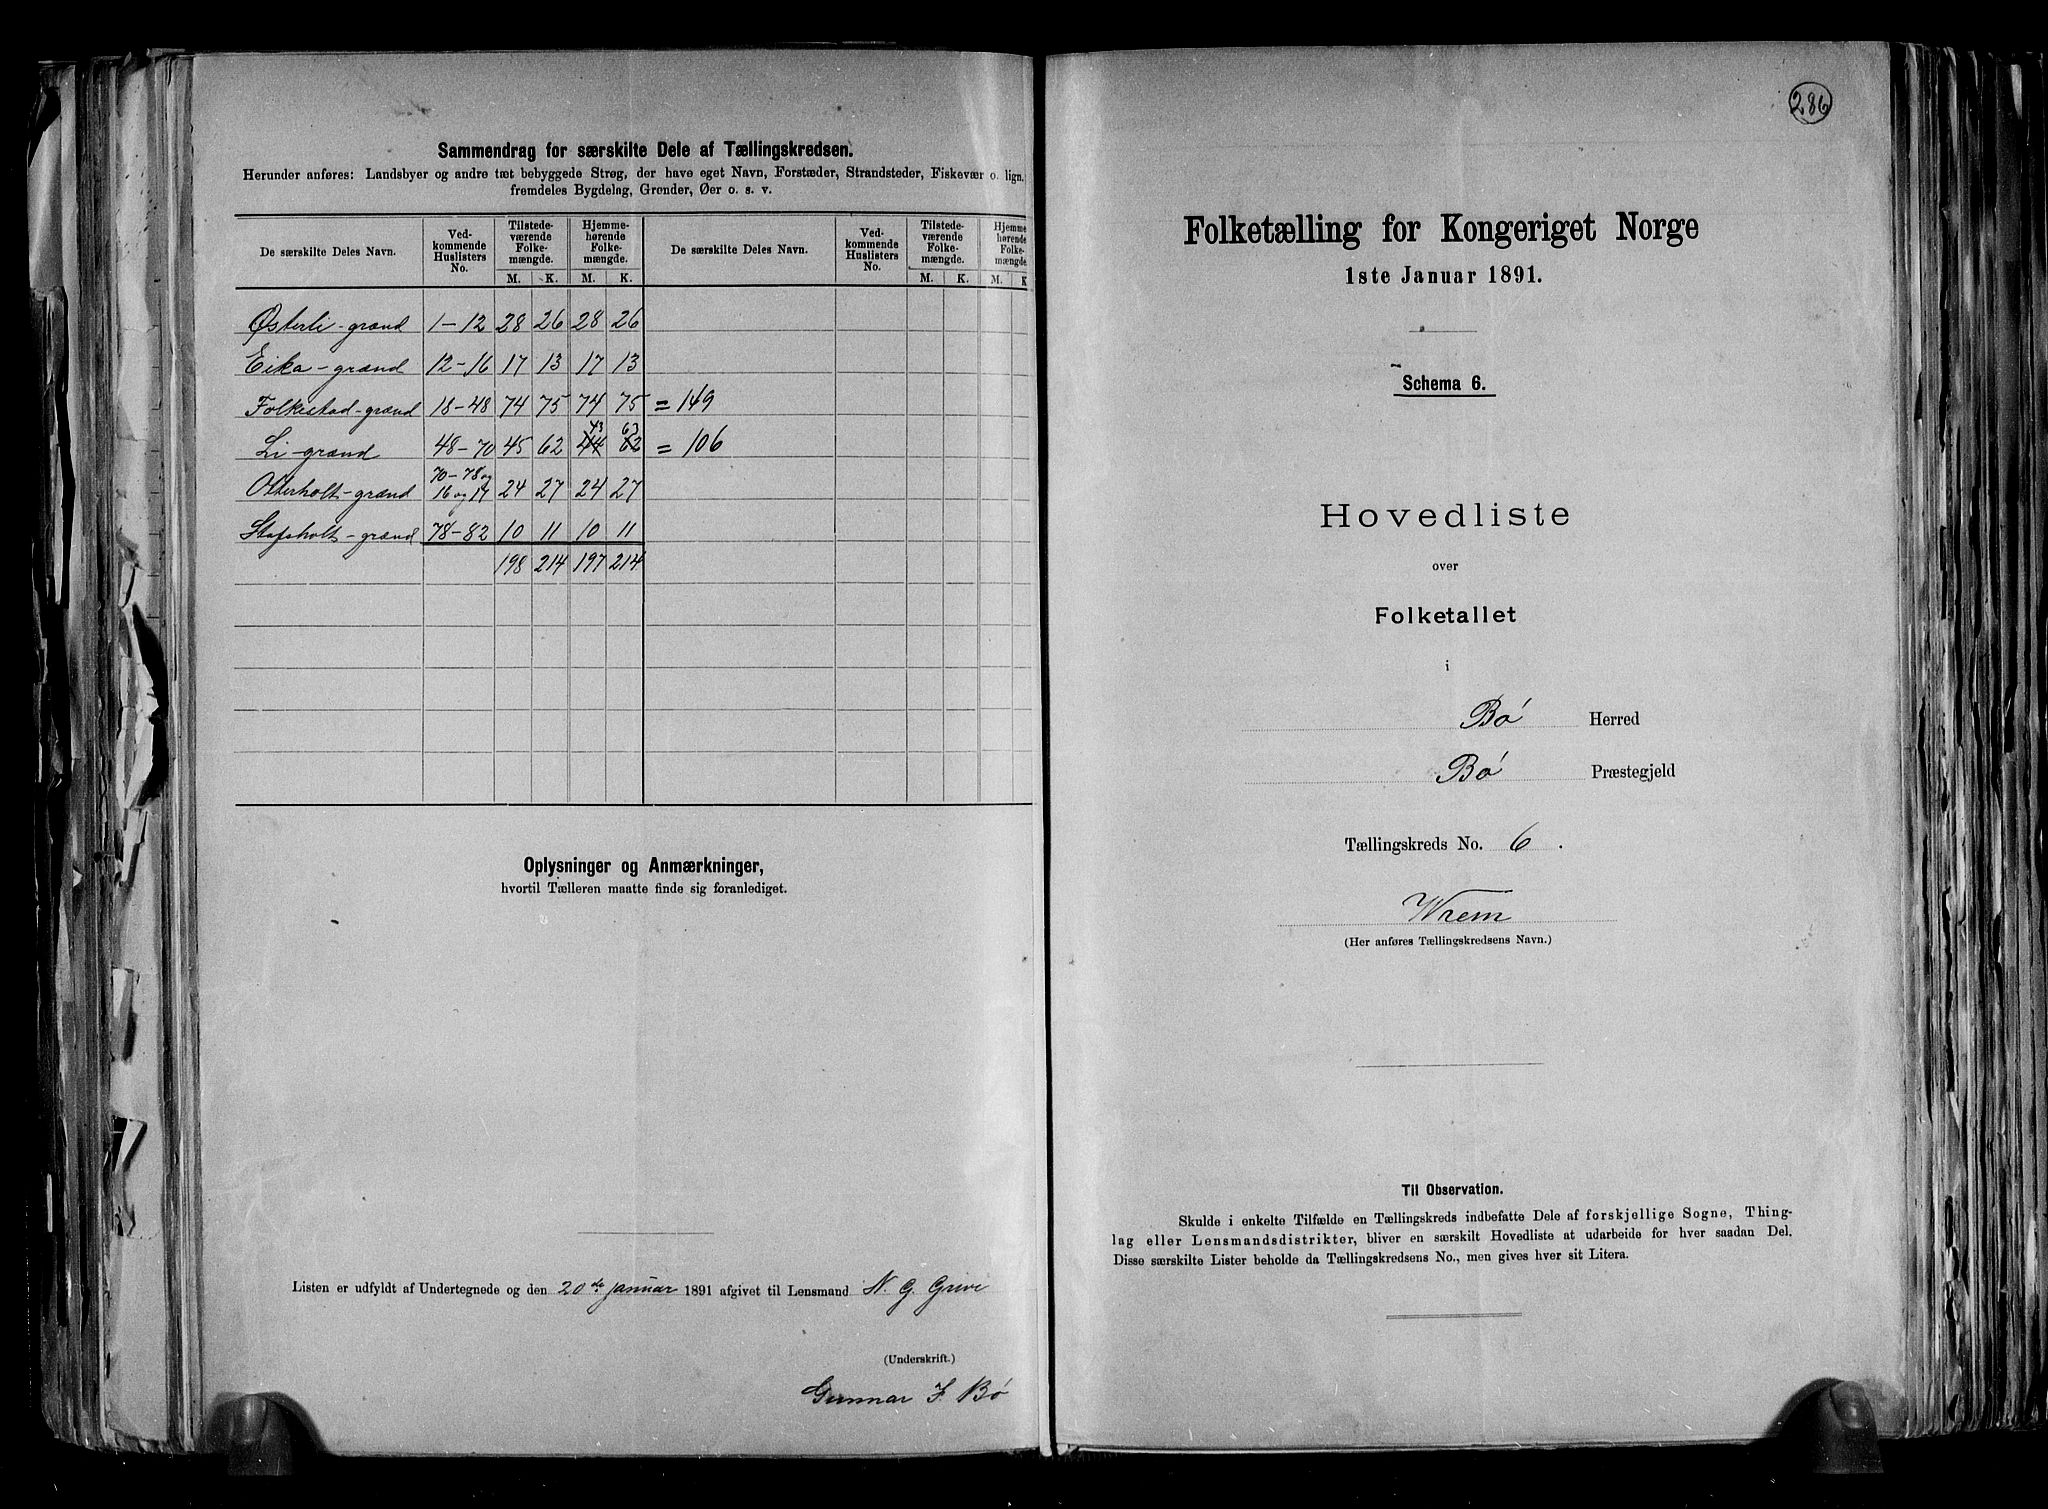 Sammendrag for særskilte Dele af Tællingskredsen.
Herunder anføres: Landsbyer og andre tæt bebyggede Strøg, der have eget Navn, Forstæder, Strandsteder, Fiskevær o. lign.
fremdeles Bygdelag, Grender, Øer o. s. v.
De særskilte Deles Navn. Ved-kommende Huslisters No. Tilstede-værende Folke-mængde. Hjemme-hørende Folke-mængde. De særskilte Deles Navn. Ved-kommende Huslisters No. Tilstede-værende Folke-mængde. Hjemme-hørende Folke-mængde.
M. K. M. K. M. K. M. K
Østerli-grænd 1-12 28 26 28 26
Eika-grænd 12-16 17 13 17 13
Folkestad-grænd 18-48 74 75 74 75 = 149
43 63
Li-grænd 48-70 45 62 44 62 = 106
70-78 og
Otterholt-grænd 16 og 17 24 27 24 27
Stafsholt-grænd 78-82 10 11 10 11
198 214 197 214
Oplysninger og Anmærkninger,
hvortil Tælleren maatte finde sig foranlediget.
Listen er udfyldt af Undertegnede og den 20de januar 1891 afgivet til Lensmand N. G. Grive
(Underskrift.)
Gunnar F. Bø
286
Folketælling for Kongeriget Norge
1ste Januar 1891.
Schema 6.
Hovedliste
over
Folketallet
i
Bø Herred
Bø Præstegjeld
Tællingskreds No. 6.
Wrem
(Her anføres Tællingskredsens Navn.)
Til Observation.
Skulde i enkelte Tilfælde en Tællingskreds indbefatte Dele af forskjellige Sogne, Thing-
lag eller Lensmandsdistrikter, bliver en særskilt Hovedliste at udarbeide for hver saadan Del.
Disse særskilte Lister beholde da Tællingskredsens No., men gives hver sit Litera.